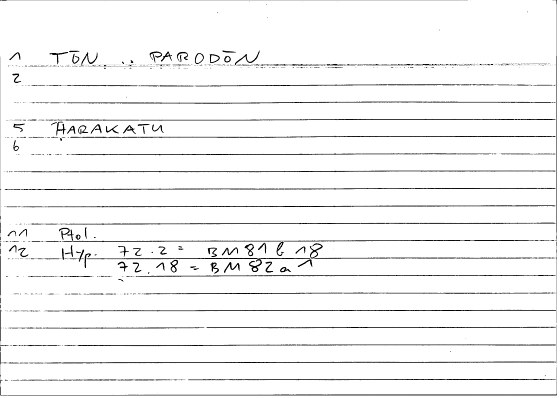 1 TŌN .. PARODŌN
2
5 ḤARAKATU
6
11 Ptol.
12 Hyp. 72.2 = BM81b18
72.18 = BM82a1